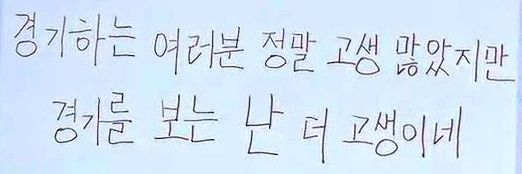 경기하는 여러분 정말 고생 많았지만
경기를 보는 난 더 고생이네